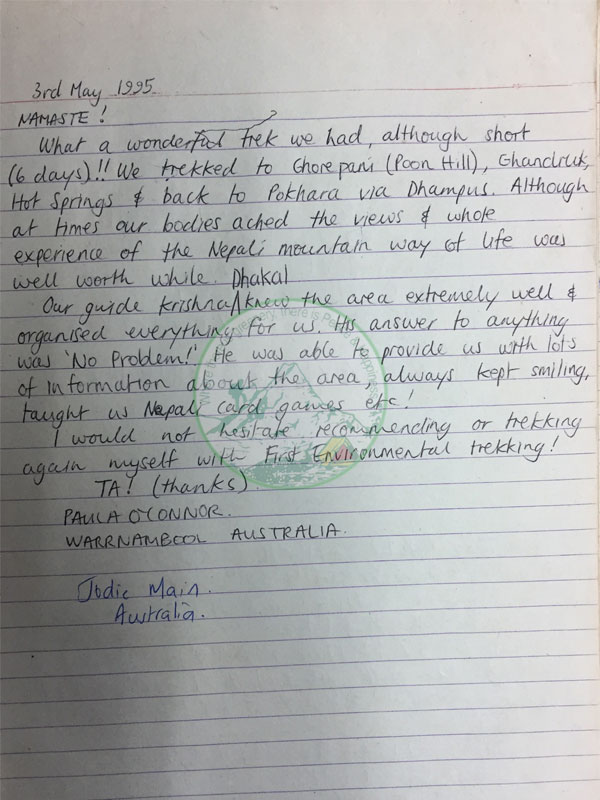 3rd May 1995
NAMASTE!
What a wonderful trek we had, although short
(6 days)!! We trekked to Ghorepani (Poon Hill), Ghandruk,
Hot Springs & back to Pokhara via Dhampus. Although
at times our bodies ached the views & whole
experience of the Nepali mountain way of life was
well worth while.
Our guide Krishna Dhakal knew the area extremely well &
organised everything for us. His answer to anything
was 'No Problem!' He was able to provide us with lots
of information about the area, always kept smiling,
taught us Nepali card games etc!
I would not hesitate recommending or trekking
again myself with First Environmental trekking!
TA! (thanks)
PAULA O'CONNOR.
WARRNAMBOOL AUSTRALIA.
Jodie Main.
Australia.